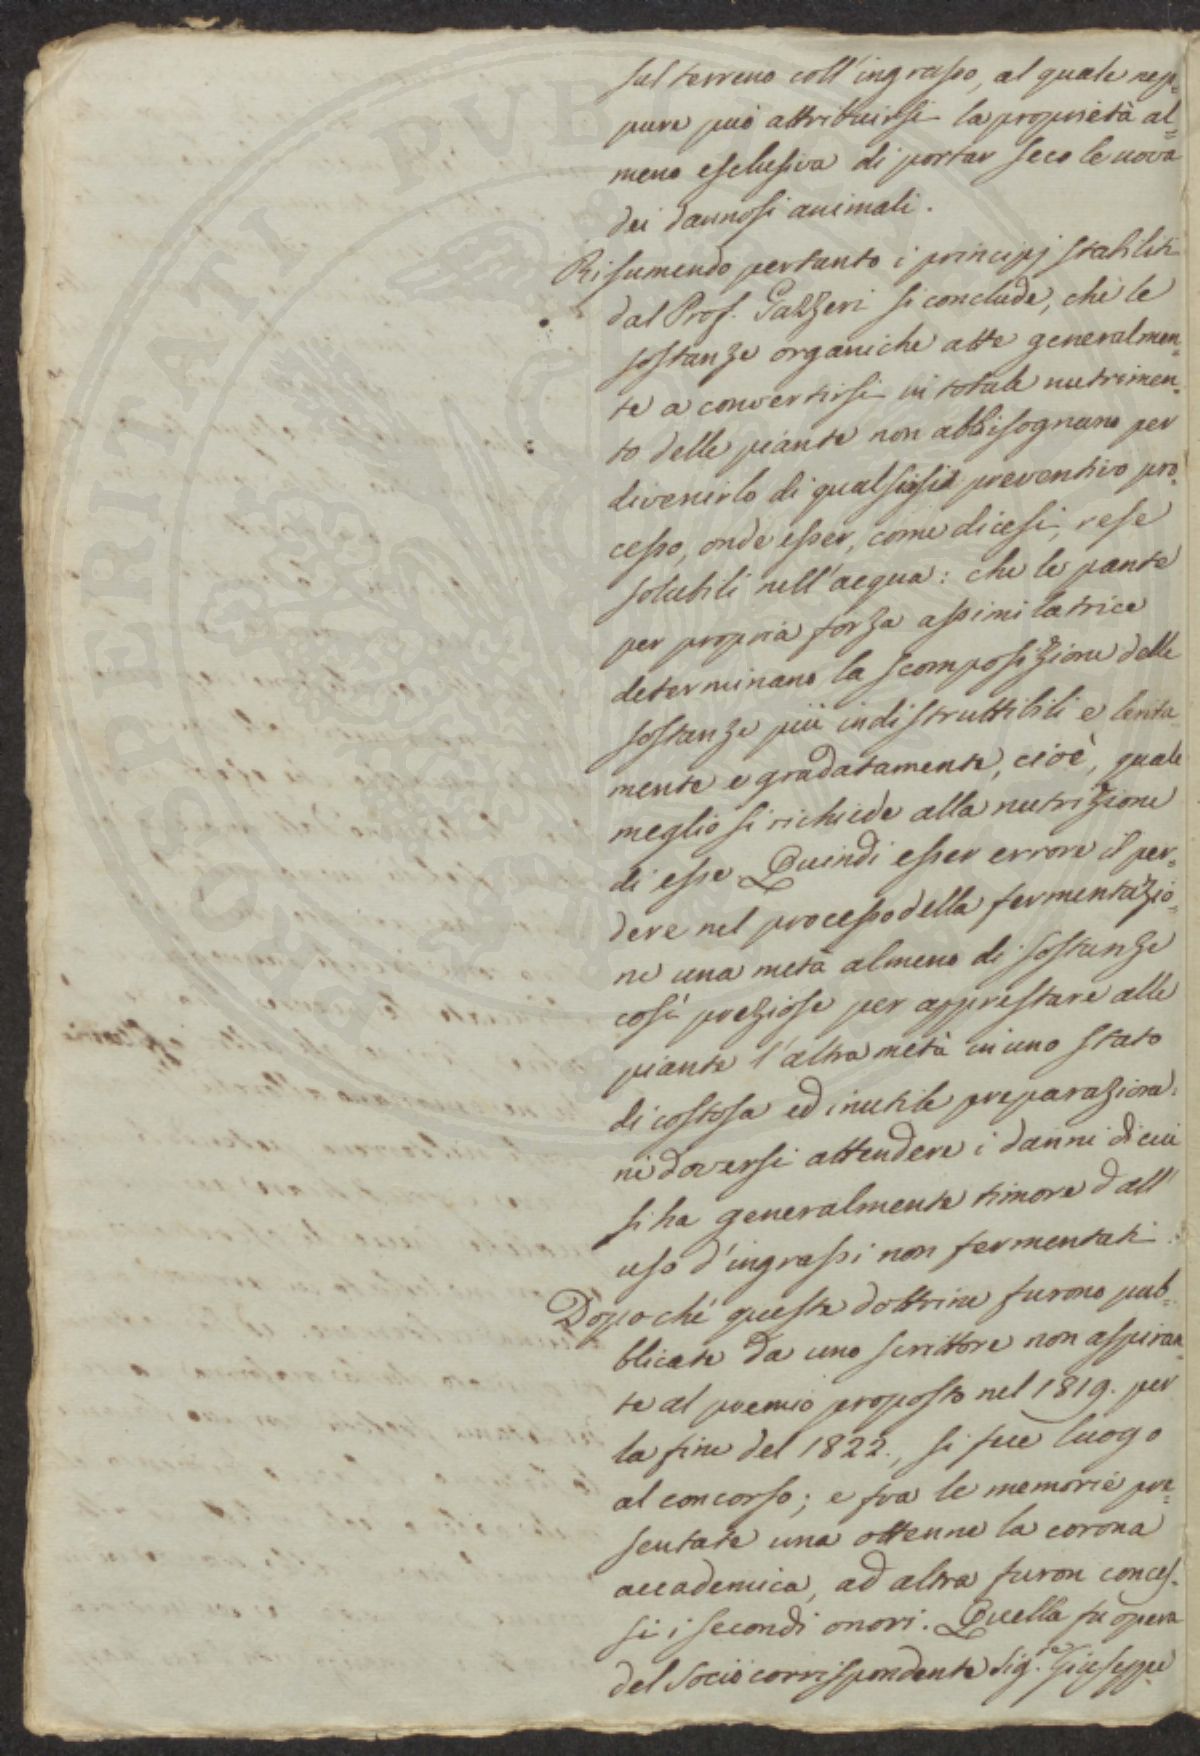 sul terreno coll'ingrasso, al quale nep=
pure può attribuirsi la proprietà al=
meno esclusiva di portar seco le uova
dei dannosi animali.
Risumendo pertanto i principj stabiliti
dal Prof. Gazzeri si conclude, che le
sostanze organiche atte generalmen=
te a convertirsi in totale nutrimen=
to delle piante non abbisognano per
divenirlo di qualsisia preventivo pro=
cesso, onde esser, come dicesi, rese
solubili nell'acqua: che le pante
per propria forza assimilatrice
determinano la scomposizione delle
sostanze più indistruttibili e lenta=
mente e gradatamente, cioè, quale
meglio si richiede alla nutrizione
di esse Quindi esser errore il per=
dere nel processo della fermentazio=
ne una metà almeno di sostanze
così preziose per apprestare alle
piante l'altra metà in uno stato
di costosa ed inutile preparazione.
nè doversi attendere i danni di cui
si ha generalmente timore dall'
uso d'ingrassi non fermentati.
Dopo chè queste dottrine furono pub=
blicate da uno scrittore non aspiran=
te al premio proposto nel 1819. per
la fine del 1822., si fece luogo
al concorso; e fra le memorie pre=
sentate una ottenne la corona
accademica, ad altra furon conces=
si i secondi onori. Quella fu opera
del Socio corrispondente Sig.re Giuseppe
HOSPERITATI PUBLICAE